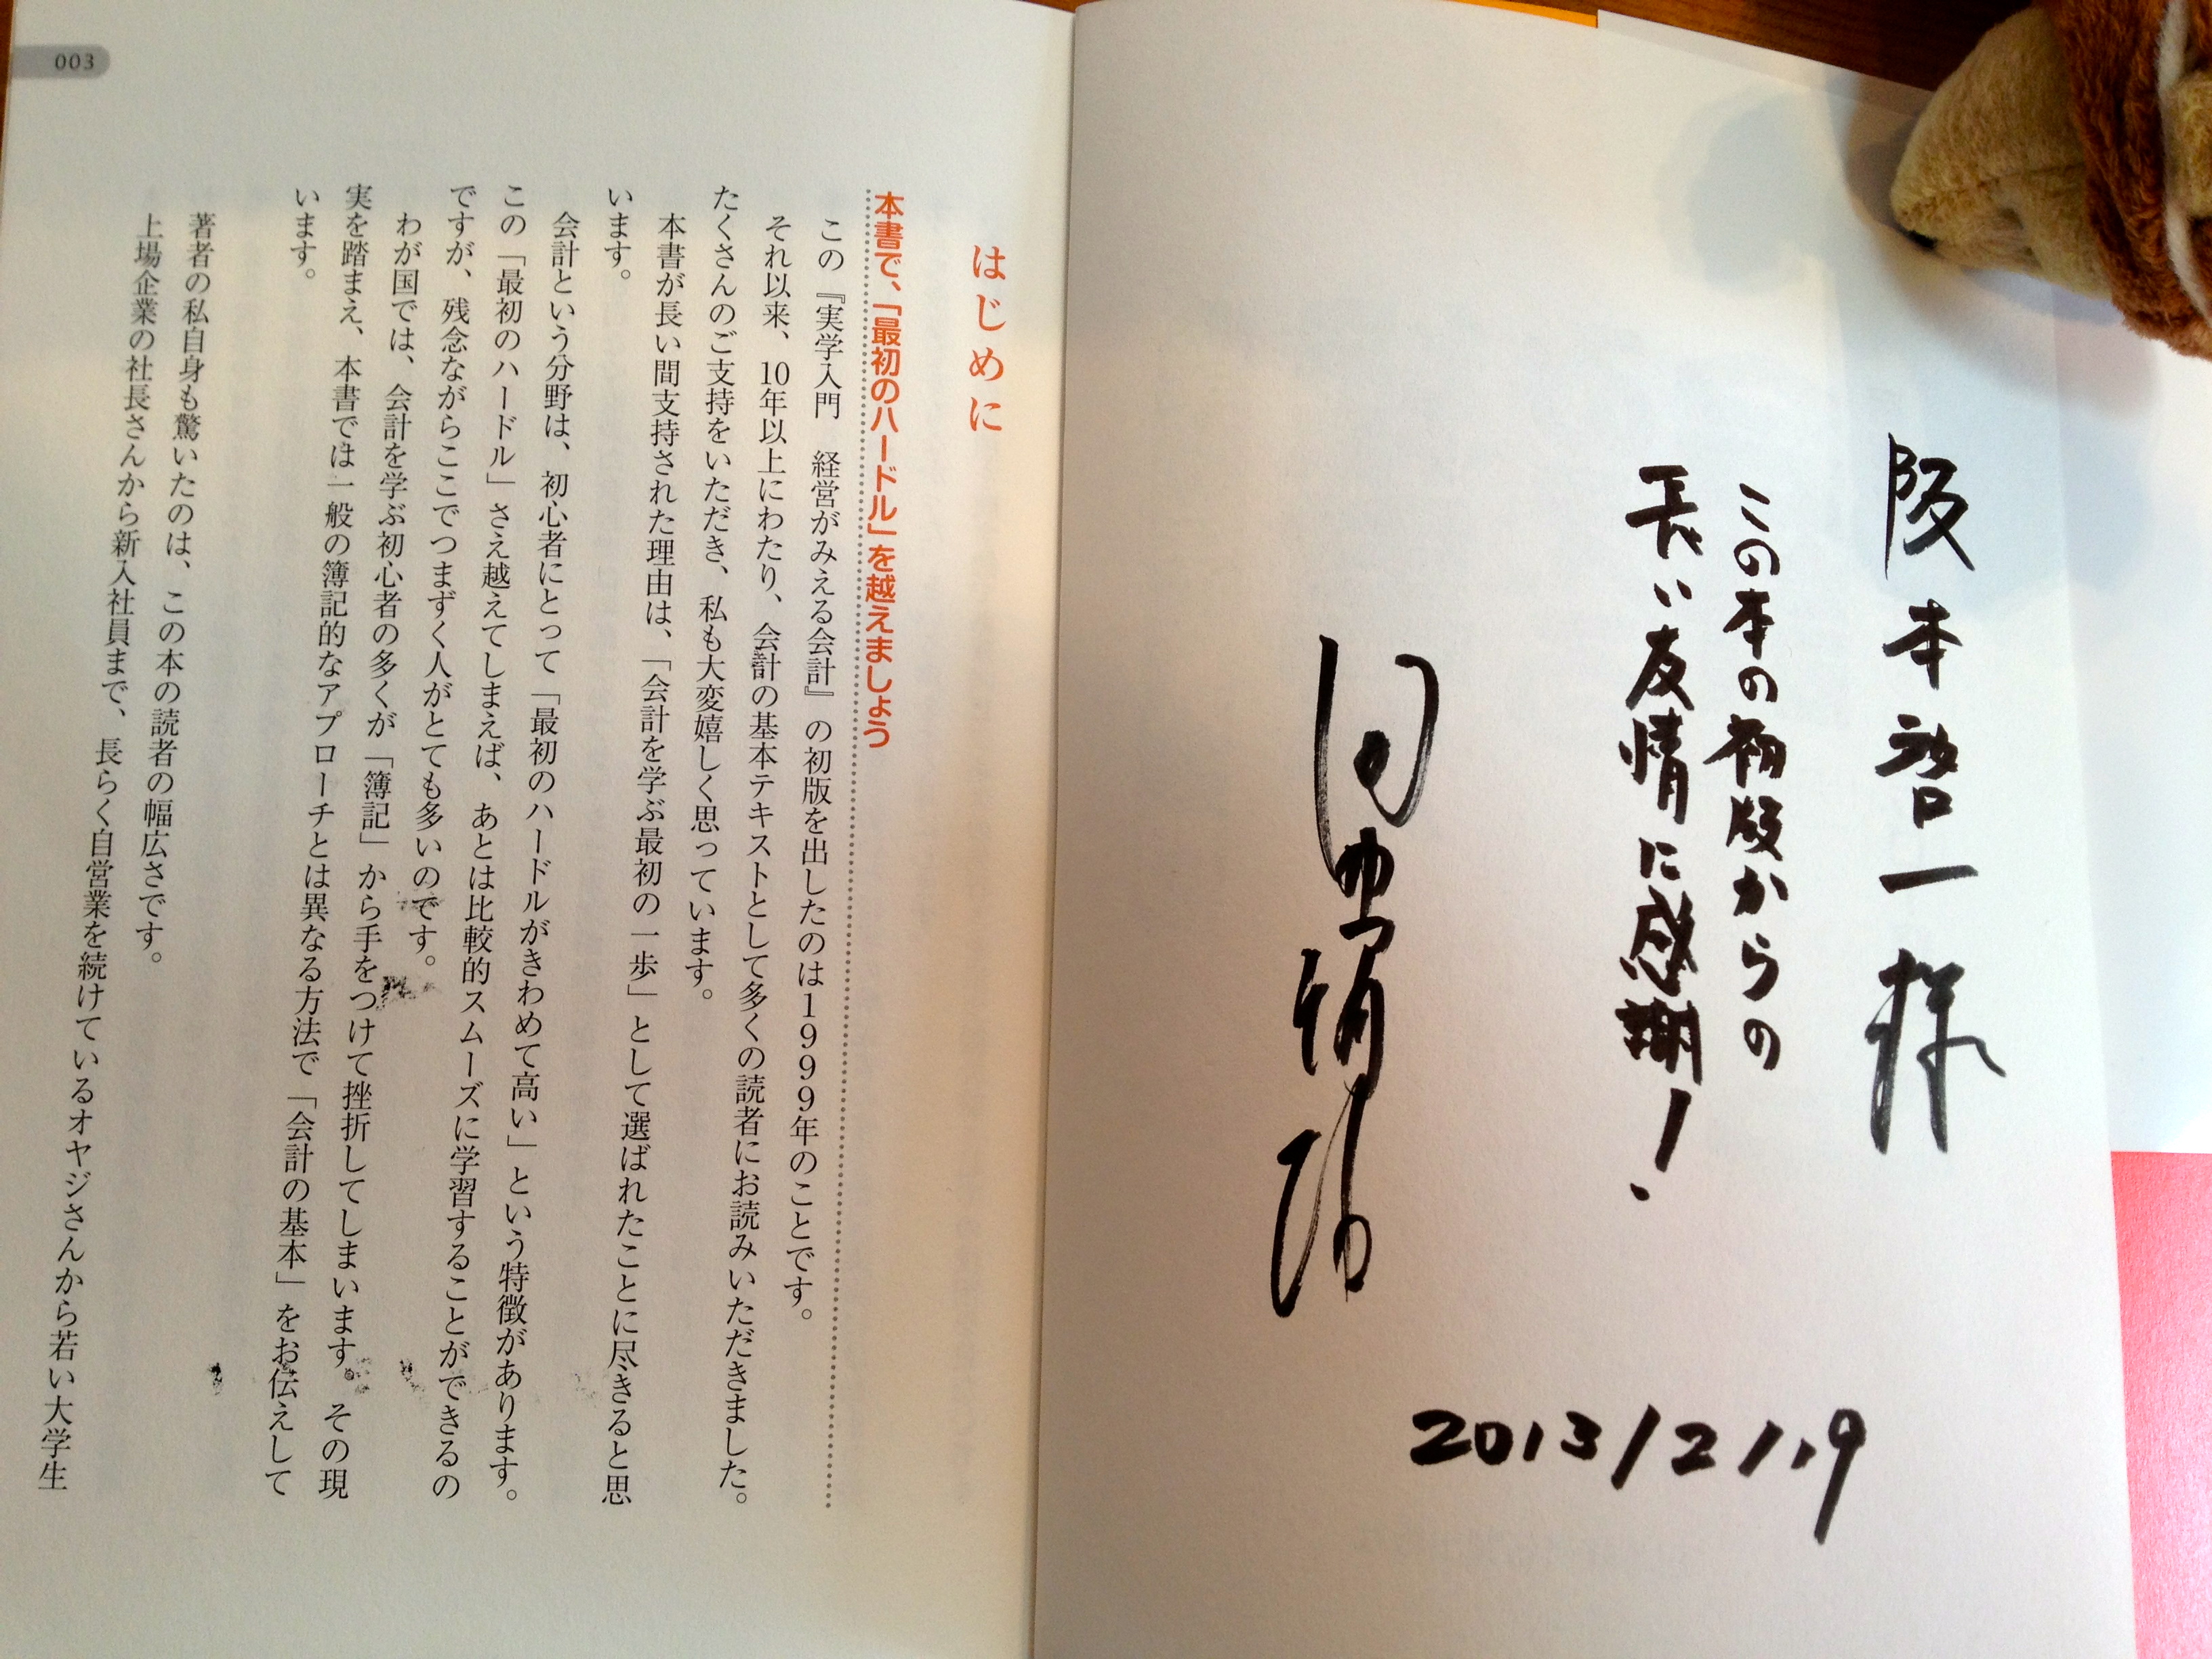 阪本啓一様
この本の初版からの
長い友情に感謝!
2013/2/19
はじめに
本書で、「最初のハードル」を越えましょう
この『実学入門 経営がみえる会計』の初版を出したのは1999年のことです。
それ以来、10年以上にわたり、会計の基本テキストとして多くの読者にお読みいただきました。
たくさんのご支持をいただき、私も大変嬉しく思っています。
本書が長い間支持された理由は、「会計を学ぶ最初の一歩」として選ばれたことに尽きると思
います。
会計という分野は、初心者にとって「最初のハードルがきわめて高い」という特徴があります。
この「最初のハードル」さえ越えてしまえば、あとは比較的スムーズに学習することができるの
ですが、残念ながらここでつまずく人がとても多いのです。
わが国では、会計を学ぶ初心者の多くが「簿記」から手をつけて挫折してしまいます。その現
実を踏まえ、本書では一般の簿記的なアプローチとは異なる方法で「会計の基本」をお伝えして
います。
著者の私自身も驚いたのは、この本の読者の幅広さです。
上場企業の社長さんから新入社員まで、長らく自営業を続けているオヤジさんから若い大学生
003